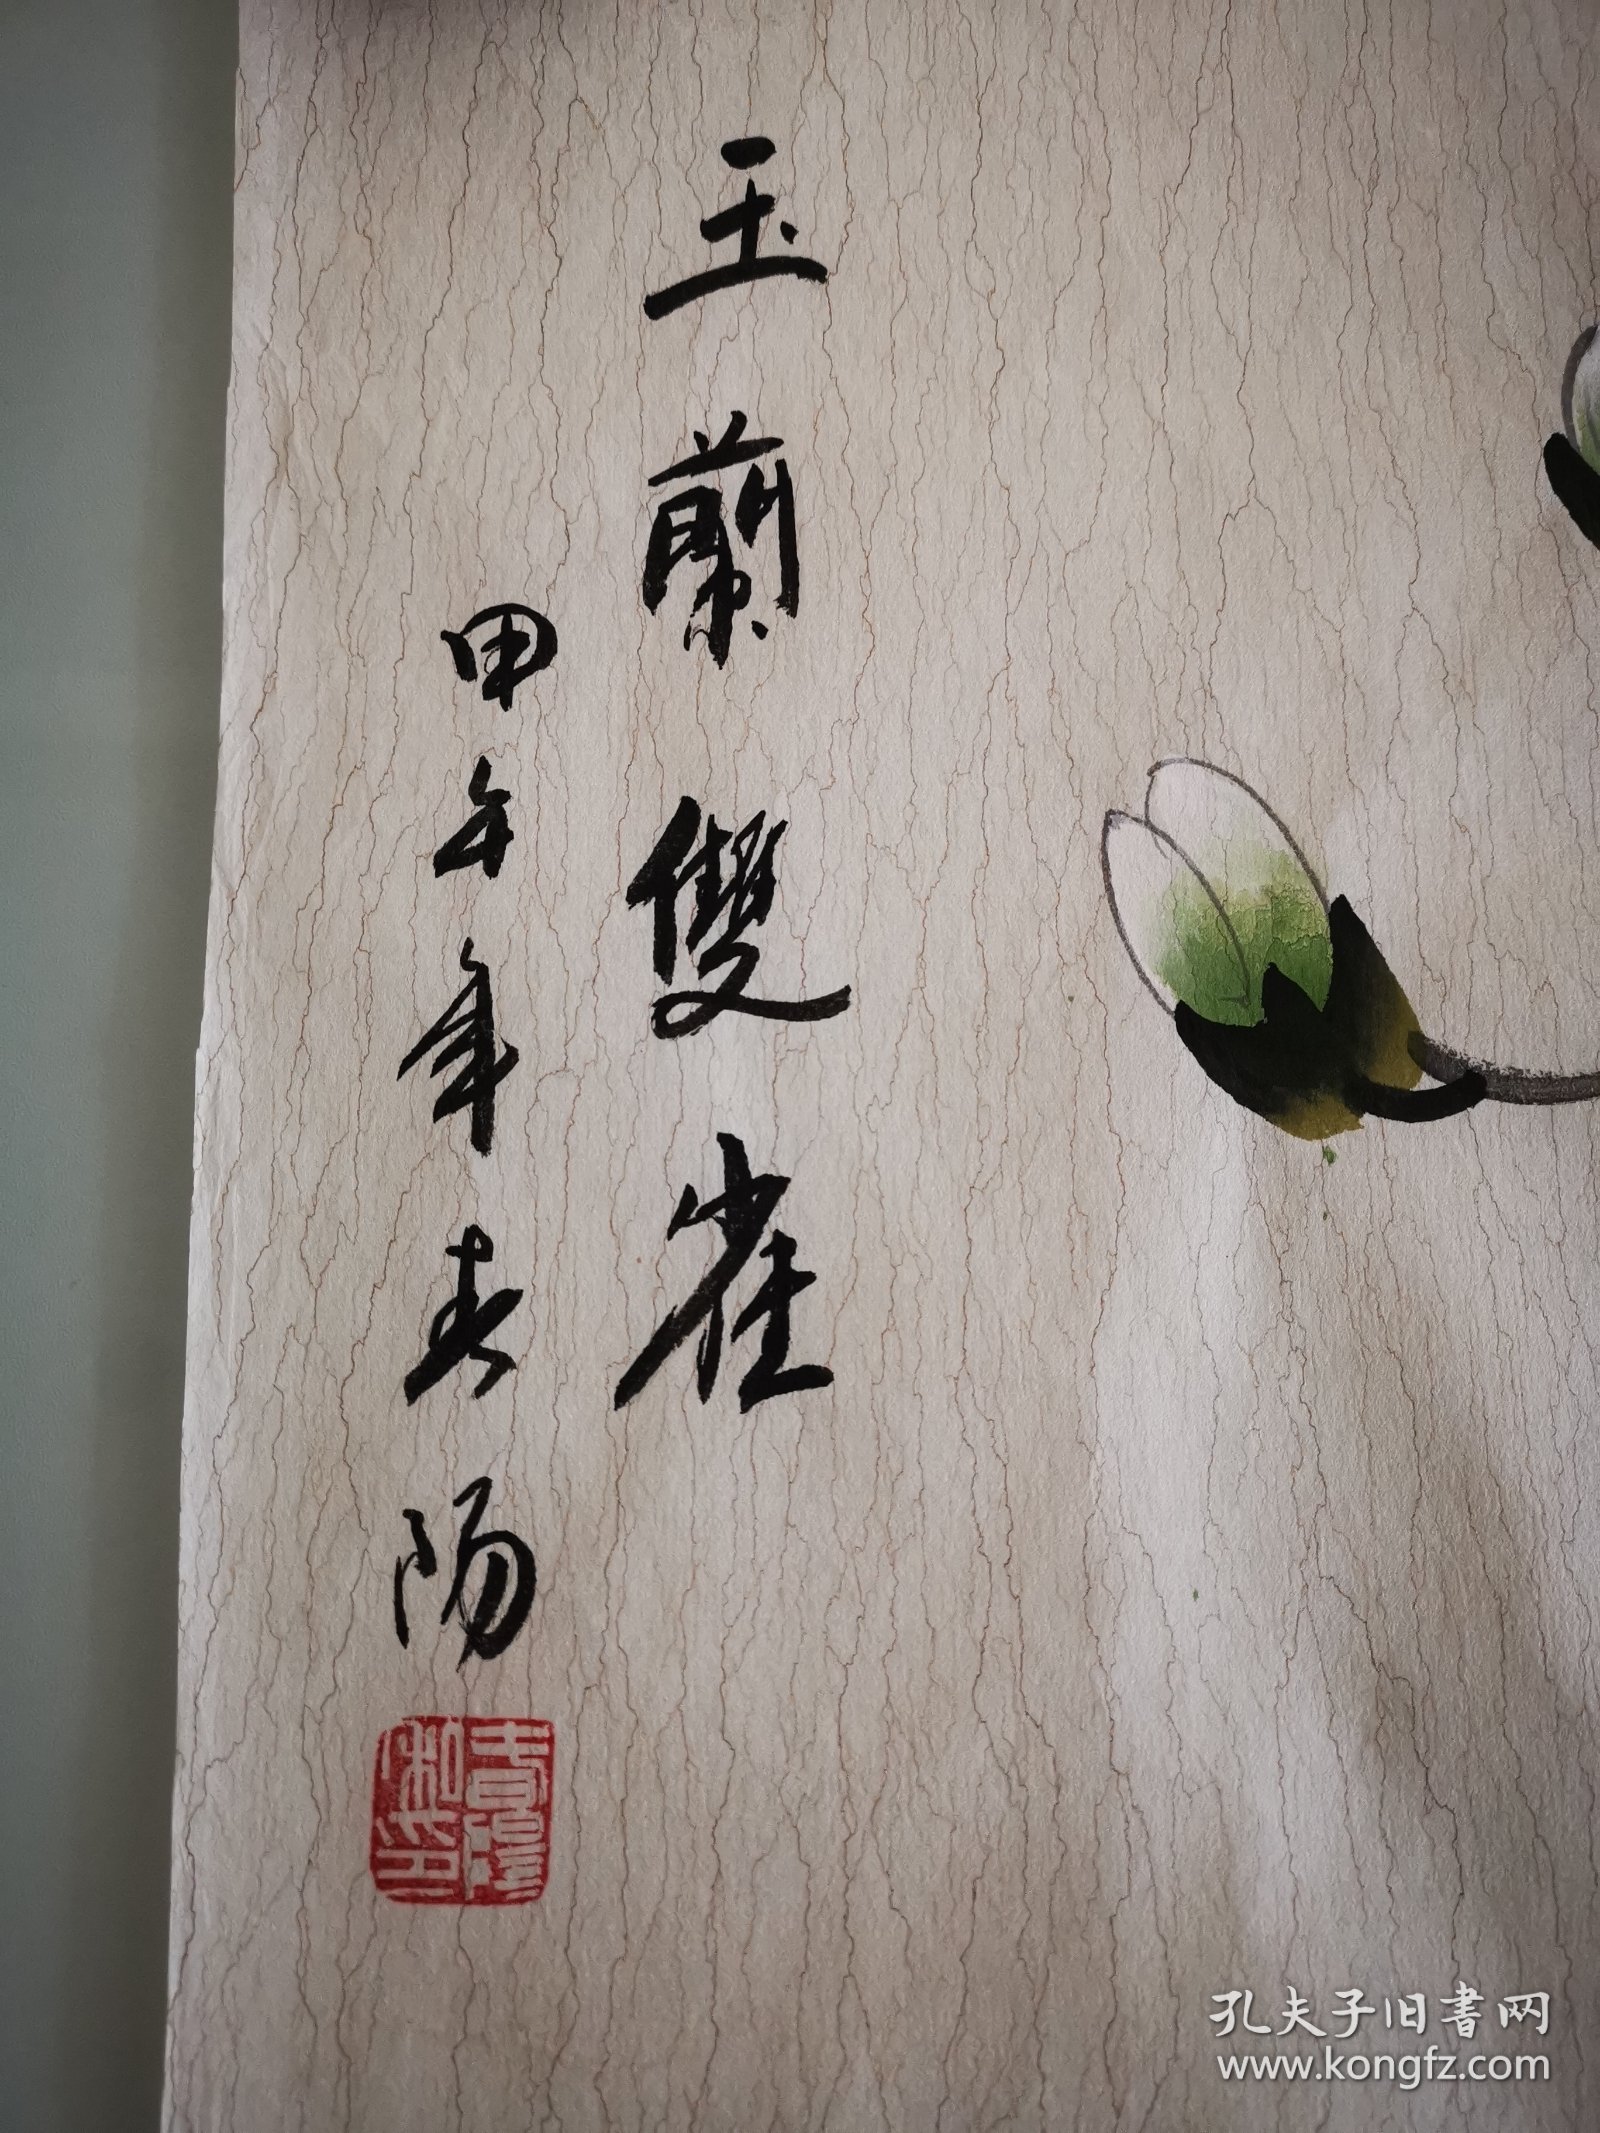 玉蘭雙雀
甲午年春陽
孔夫子旧書网
www.kongfz.com